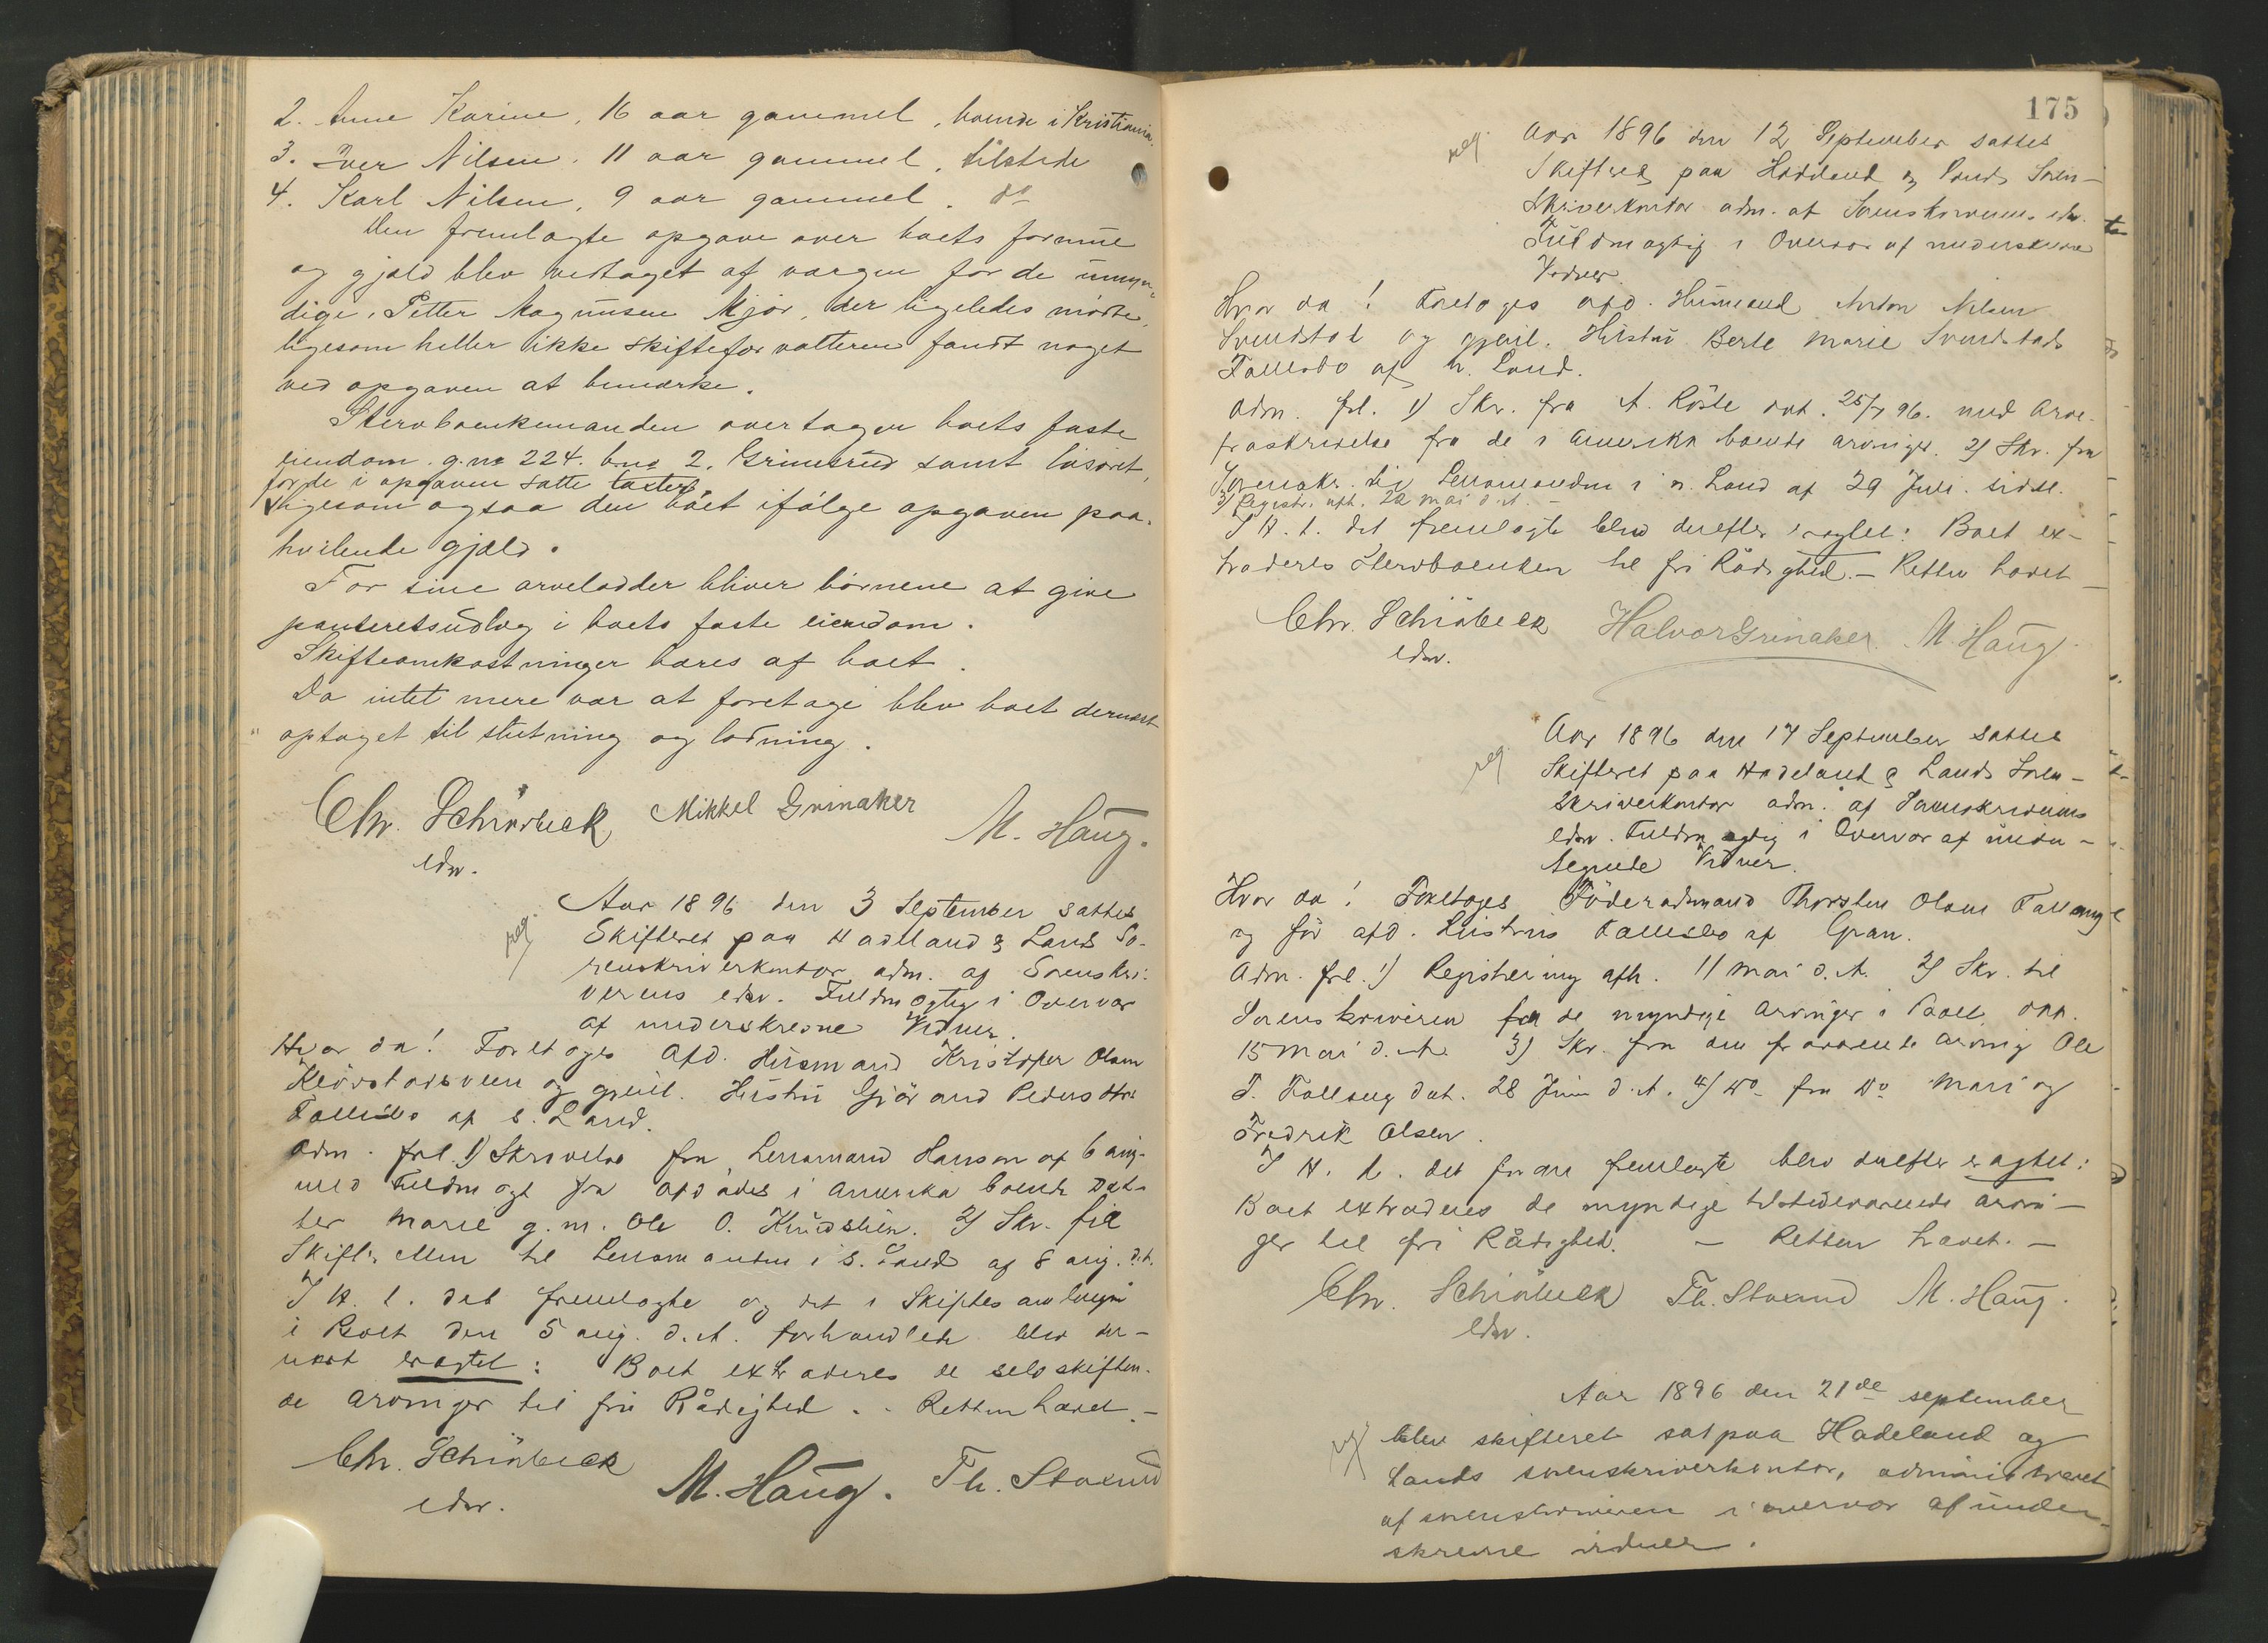 2. Anne Karine, 16 aar gammel, boende i Kristiania.
3. Iver Nilsen, 11 aar gammel, tilstede
4. Karl Nilsen, 9 aar gammel. do
Den fremlagte opgave over boets formue
og gjæld blev vedtaget af værgen for de umyn-
dige, Petter Magnusen Mjør, der ligeledes mødte,
ligesom heller ikke skifteforvalteren fandt noget
ved opgaven at bemærke.
Stervboenkemanden overtager boets faste
eiendom g.no 224. b.no 2. Grinerud samt løsøret,
for de i opgaven satte taxter,
ligesom ogsaa den boet ifølge opgaven paa-
hvilende gjæld.
For sine arvelodder bliver børnene at give
panteretsudlæg i boets faste eiendom.
Skifteomkostninger bæres af boet.
Da intet mere var at foretage blev boet dernæst
optaget til slutning og lodning.
Chr. Schiøbeck Mikkel Grinaker M. Haug.
edsv.
reg. Aar 1896 den 3 September sattes
Skifteret paa Hadeland & Lands So-
renskriverkontor adm. af Sorenskri-
verens edsv. Fuldmægtig i Overvær
af underskrevne Vidner.
Hvor da! Foretoges Afd. Husmand Kristofer Olsen
Kløvstadsveen og gjenl. Hustru Gjørand Pedersdtr
Fællesbo af s. Land.
Adm. frl. 1) Skrivelse fra Lensmand Hanson af 6 aug.
med Fuldmagt fra Afdødes i Amerika boende Dat-
ter Marie g. m. Ole O. Knudslien. 2) Skr. fra
Skifteretten til Lensmanden i s. Land af 8 aug. d.A.
I H. t. det fremlagte og det i Skiftesamlingen
i Boet den 5 aug. d.A. forhandlede blev der-
næst eragtet: Boet extraderes de selvskiften-
de arvinger til fri Rådighed. - Retten hævet. -
Chr. Schiøbeck M. Haug. Th. Strand
edsv.
175
reg. Aar 1896 den 12 September sattes
Skifteret paa Hadeland & Lands Soren-
skriverkontor adm. af Sorenskriverens edsv.
Fuldmægtig i Overvær af underskrevne
Vidner.
Hvor da! Foretoges afd. Husmand Anton Nilsen
Svendstad og gjenl. Hustru Berte Marie Svendstads
Fællesbo af n. Land.
Adm. frl. 1) Skr. fra A. Røste dat. 25/7 96. med Arve-
fraskrivelse fra de i Amerika boende arvinger. 2) Skr. fra
Sorenskr. til Lensmanden i n. Land af 29 Juli sidstl.
3) Registr. afh. 22 Mai d.A. -
I H. t. det fremlagte blev derefter eragtet: Boet ex-
traderes Stervboenken til fri Rådighed. - Retten hævet -
Chr. Schiøbeck Halvor Grinaker. M. Haug.
edsv.
reg. Aar 1896 den 17 September sattes
Skifteret paa Hadeland & Lands Soren-
skriverkontor adm. af Sorenskriverens
edsv. Fuldmægtig i Overvær af under-
tegnede Vidner.
Hvor da! Foretoges Føderådsmand Thorsten Olsen Fallang
og før afd. Hustrus Fællesbo af Gran.
Adm. frl. 1) Registrering afh. 11 Mai d.A. 2) Skr. til
Sorenskriveren fra de myndige arvinger i Boet dat.
15 Mai d.A. 3) Skr. fra den fraværende arving Ole
T. Fallang dat. 28 Juni d.A. 4) do fra do Mari og
Fredrik Olsen.
I H. t. det foran fremlagte blev derefter eragtet:
Boet extraderes de myndige tilstedeværende arvin-
ger til fri Rådighed. - Retten hævet. -
Chr. Schiøbeck Th. Strand M. Haug.
edsv.
Aar 1896 den 21de september
reg blev skifteret sat paa Hadeland og
Lands sorenskriverkontor, administreret
af sorenskriveren i overvær af under-
skrevne vidner.